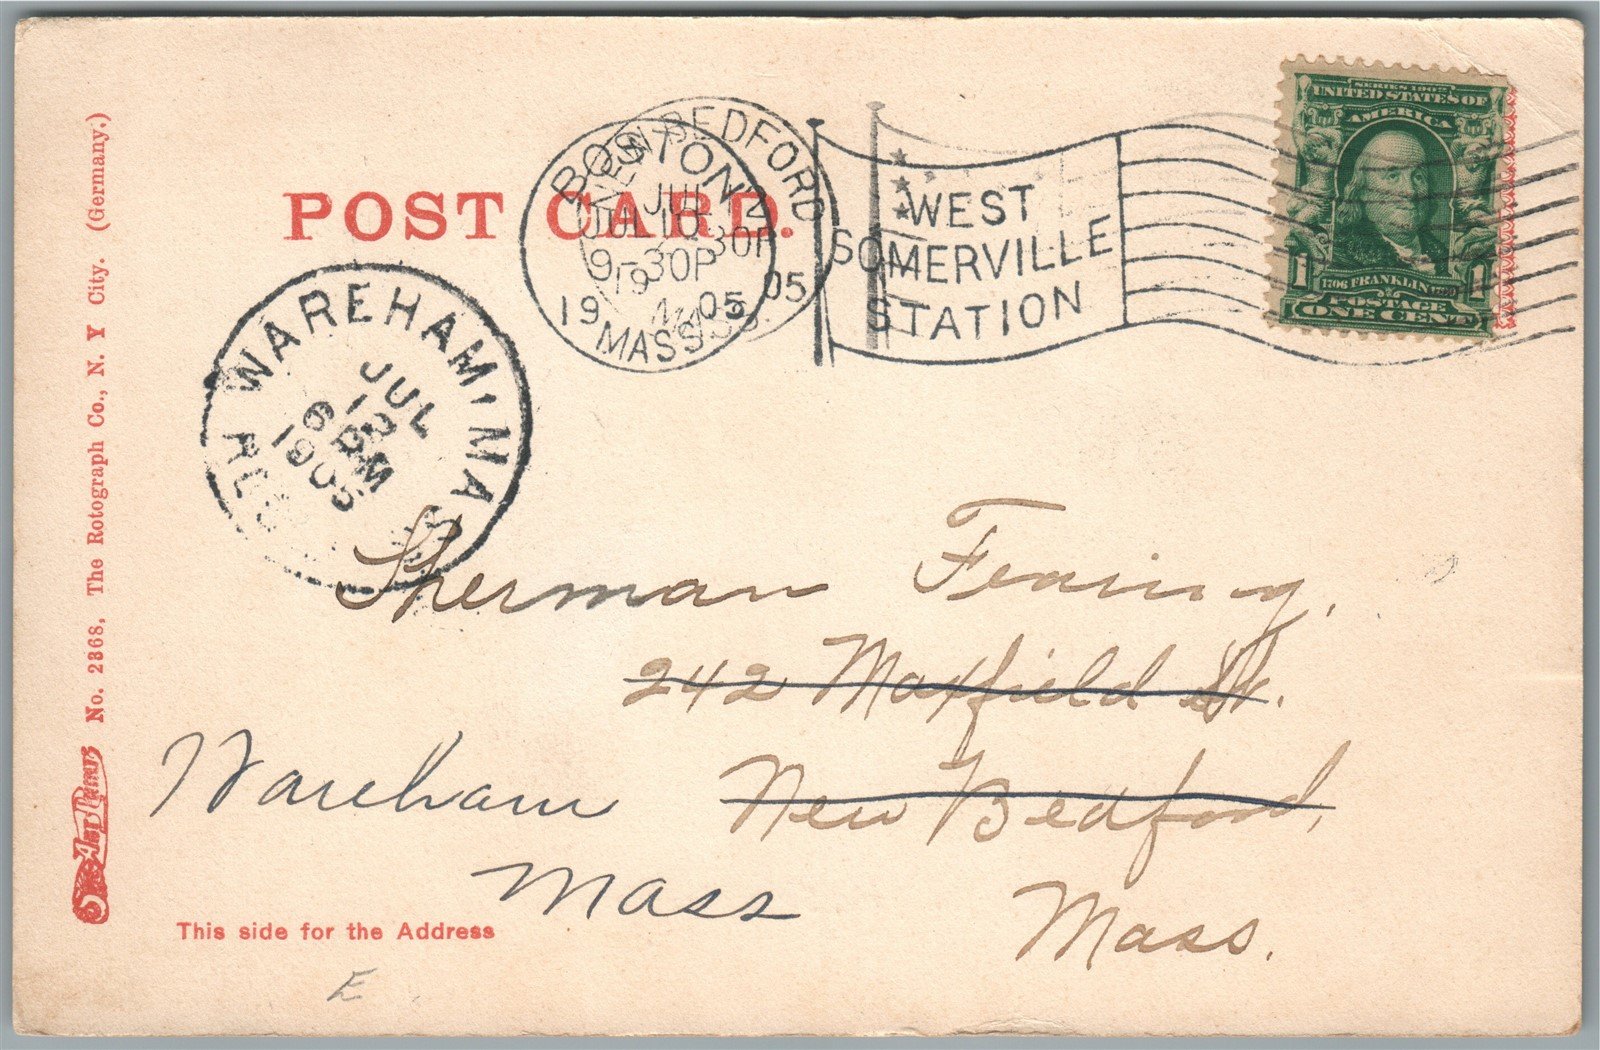 POST CARD.
BOSTON
JUL 10
9-30P
1905
MASS.
NEW BEDFORD
JUL 12
-30P
1905
MASS.
WEST
SOMERVILLE
STATION
SERIES 1902
UNITED STATES OF
AMERICA
1706 FRANKLIN 1790
POSTAGE
1 ONE CENT 1
WAREHAM, MASS
JUL
12
6 PM
1905
Sherman Fearing,
242 Maxfield St.
New Bedford,
Mass.
Wareham
Mass
This side for the Address
E
No. 2368, The Rotograph Co., N. Y City. (Germany.)